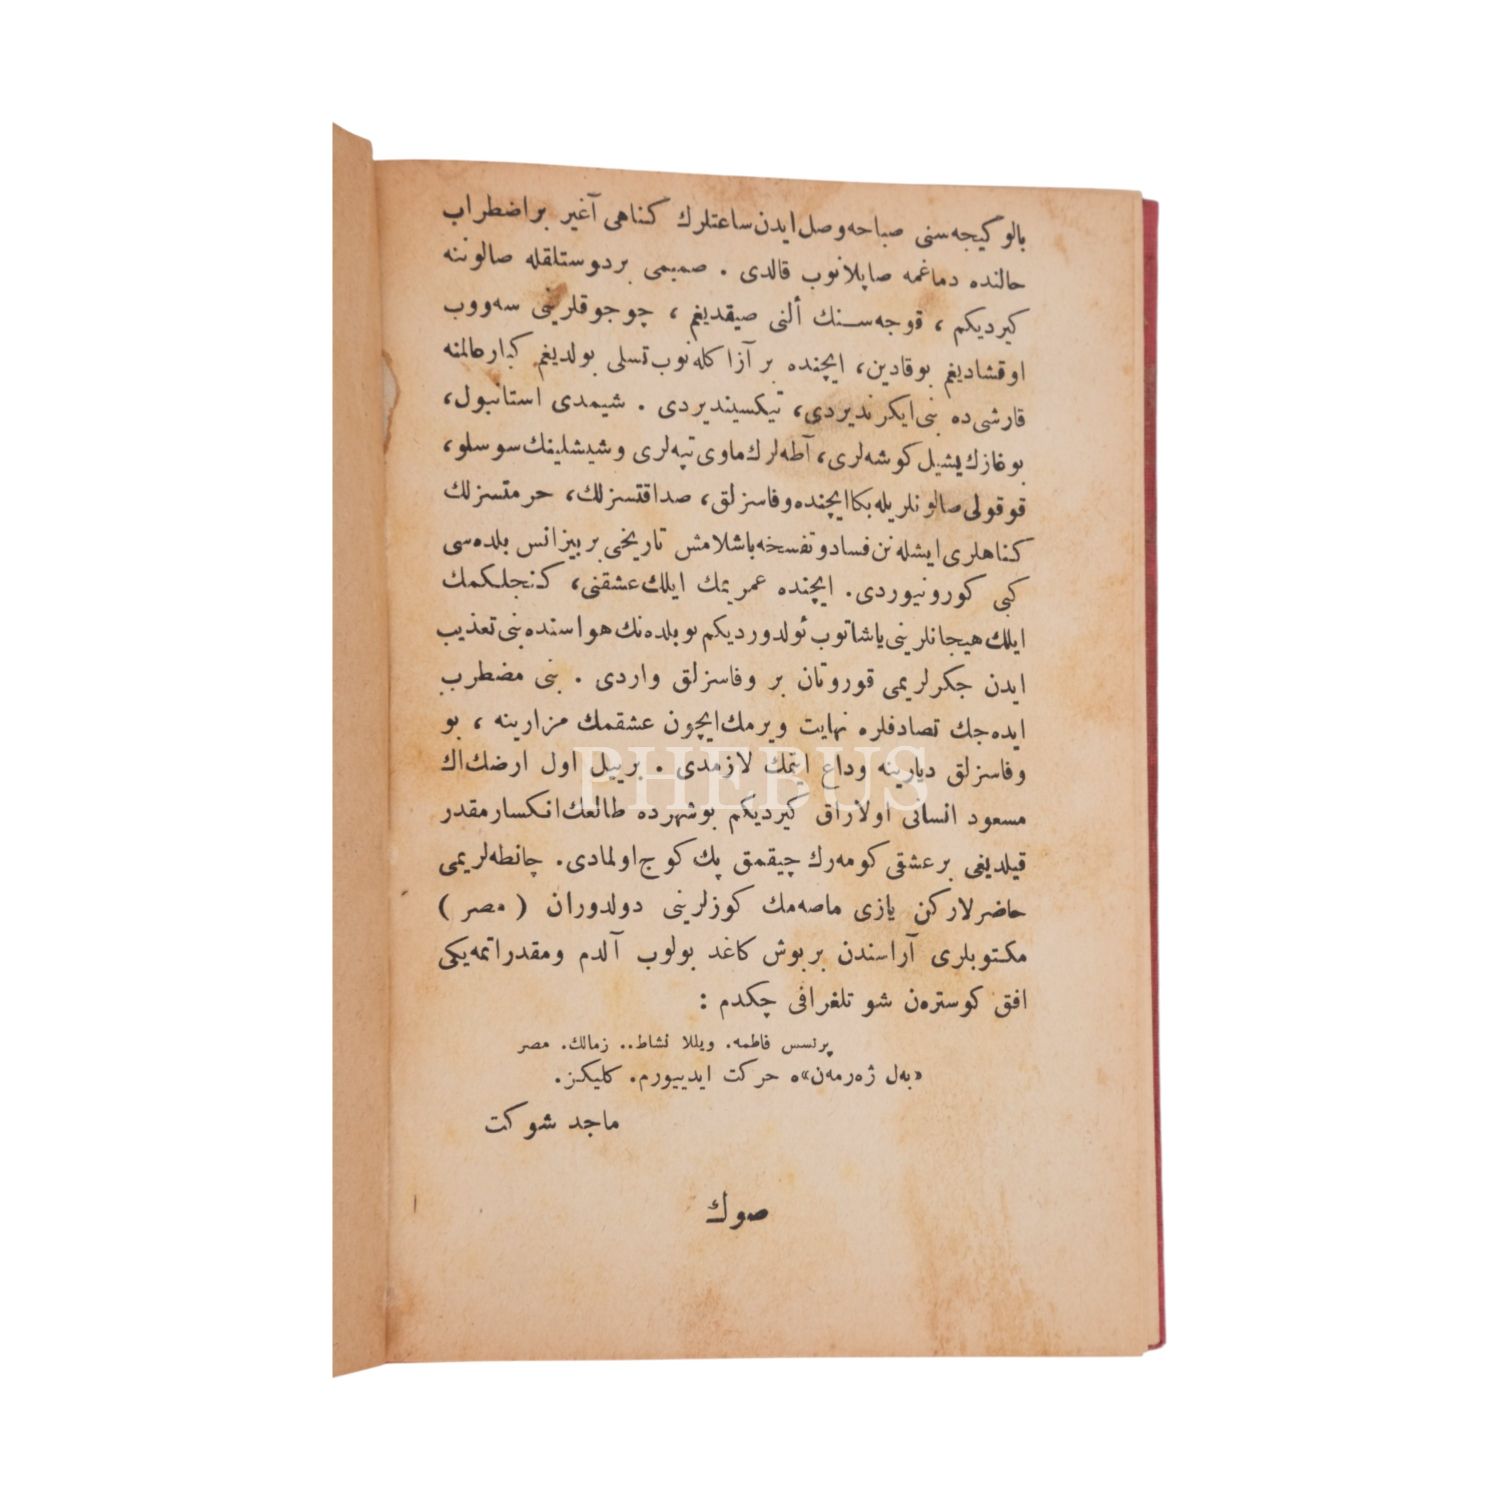 بالو كيجه‌سنى صباحه وصل ايدن ساعتلرك كناهى آغير بر اضطراب
حالنده دماغمه صاپلانوب قالدى . صميمى بر دوستلقله صالوننه
كيرديكم ، قوجه‌سنك ألنى صيقديغم ، چوجوقلرينى سه‌ووب
اوقشاديغم بو قادين، ايچنده بر آز اكله‌نوب تسلى بولديغم كبار عالمنه
قارشى ده بنى ايكرنديردى، تيكسينديردى . شيمدى استانبول،
بوغازك يشيل كوشه‌لرى، آطه‌لرك ماوى تپه‌لرى و شيشلينك سوسلو،
قوقولى صالونلريله بكا ايچنده وفاسزلق، صداقتسزلك، حرمتسزلك
كناهلرى ايشله‌نن فساد و تفسخه باشلامش تاريخى بر بيزانس بلده‌سى
كبى كورونيوردى. ايچنده عمريمك ايلك عشقنى، كنجلكمك
ايلك هيجانلرينى ياشاتوب ئولدورديكم بو بلده‌نك هواسنده بنى تعذيب
ايدن جكرلريمى قوروتان بر وفاسزلق واردى . بنى مضطرب
ايده‌جك تصادفلره نهايت ويرمك ايچون عشقمك مزارينه ، بو
وفاسزلق ديارينه وداع ايتمك لازمدى . بر ييل اول ارضك اك
مسعود انسانى اولاراق كيرديكم بو شهرده طالعك انكسار مقدر
قيلديغى بر عشقى كومه‌رك چيقمق پك كوج اولمادى. چانطه‌لريمى
حاضرلاركن يازى ماصه‌مك كوزلرينى دولدوران ( مصر )
مكتوبلرى آراسندن بر بوش كاغد بولوب آلدم و مقدراتمه يكى
افق كوستره‌ن شو تلغرافى چكدم :
پرنسس فاطمه. ويللا نشاط.. زمالك. مصر
«به‌ل ژه‌رمه‌ن»ه حركت ايدييورم. كليكز.
ماجد شوكت
صوك
PHEBUS